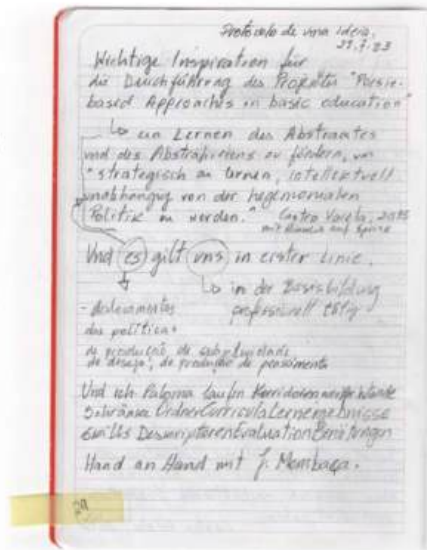 Protocolo de uma ideia.
21.7.23
Wichtige Inspiration für
die Durchführung des Projektes "Poesie-
based Approaches in basic education"
↳ um Lernen des Abstraktes
und des Abstrahierens zu fördern, um
"strategisch zu lernen, intellektuell
unabhängig von der hegemonialen
Politik zu werden."
Castro Varela, 2015
mit Hinweis auf Spivak
Und es gilt uns in erster Linie.
↳ in der Basisbildung
professionell tätig
- deslocamentos
das políticas
de produção de subjetividade
de desejo, de produção de pensamento
Und ich Paloma laufen Korridore
Schränke Ordner Curricula Lernergebnisse
Skills Deskriptoren Evaluation
Hand an Hand mit J. Mombaça.
29